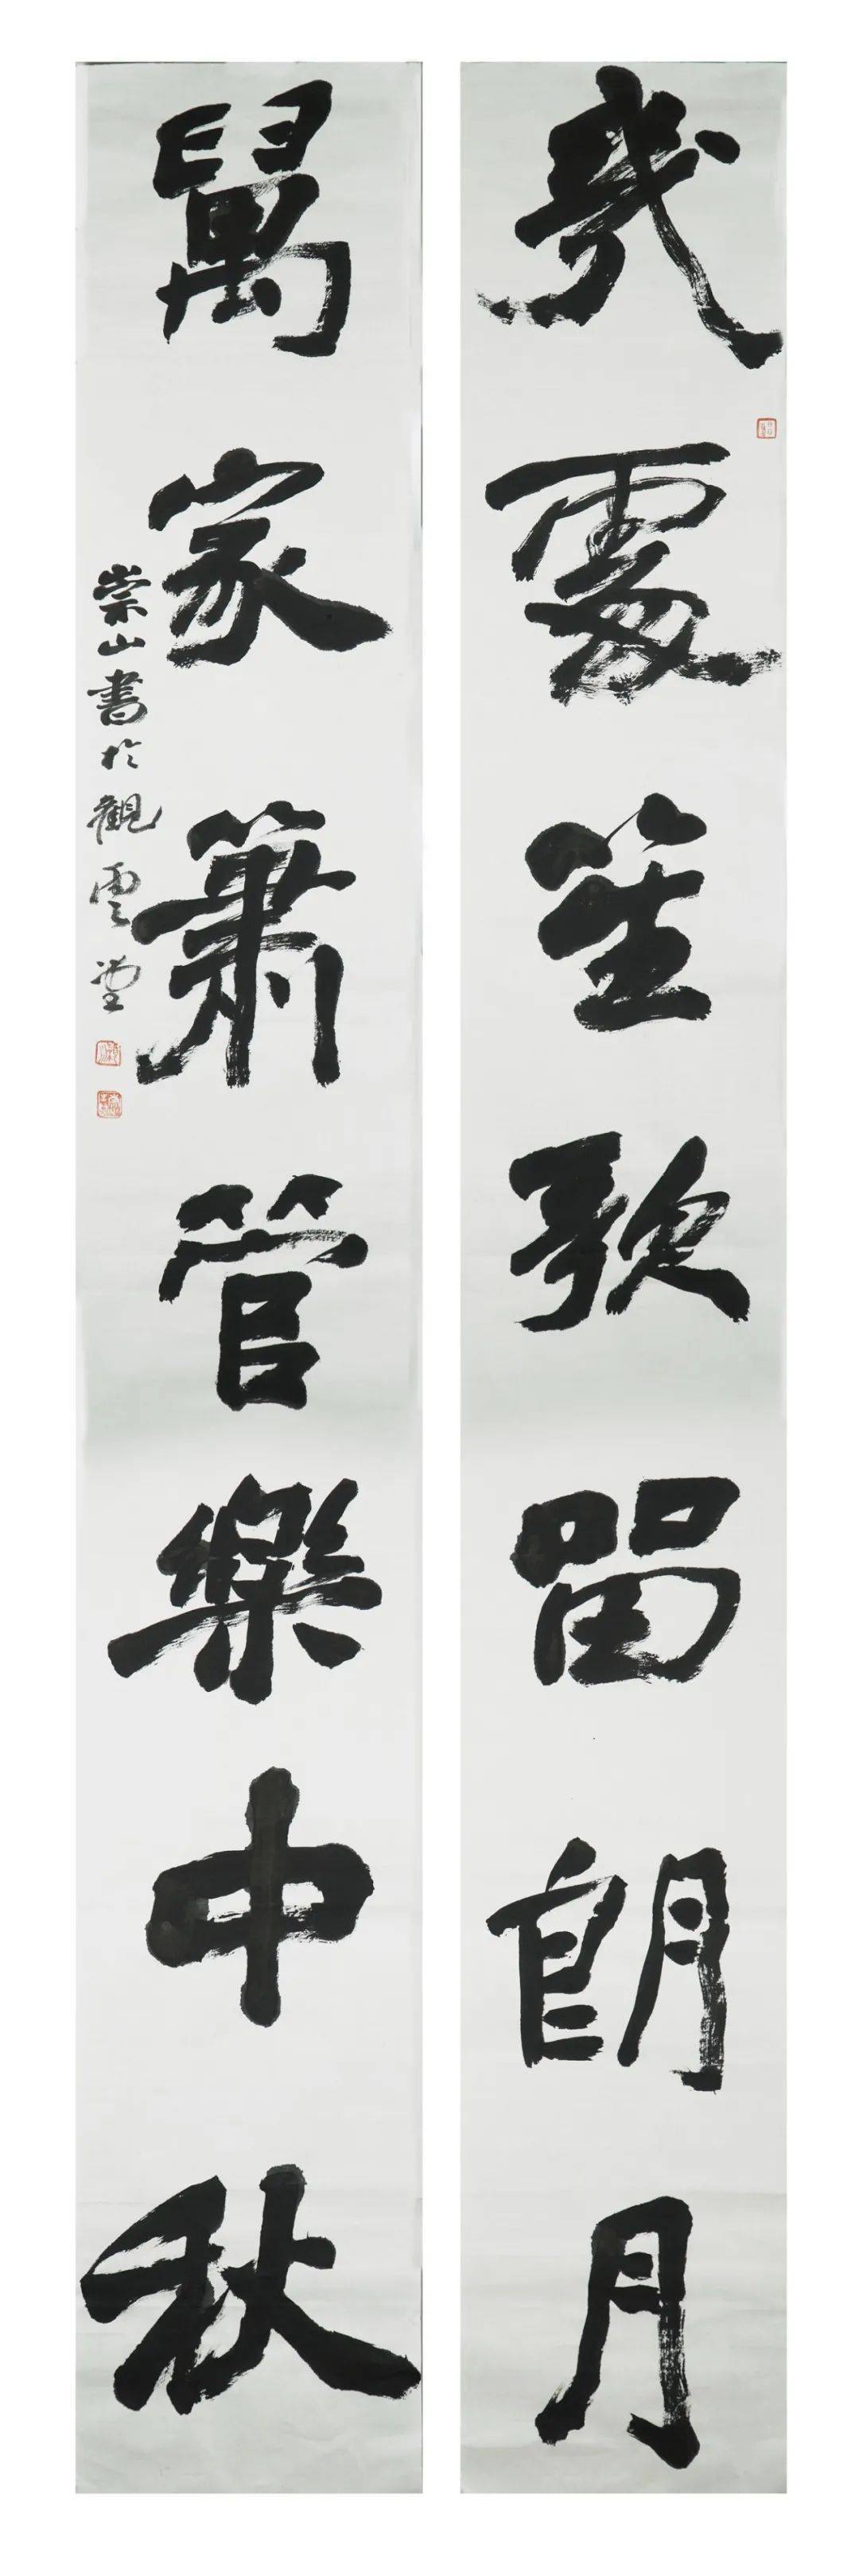 幾處笙歌留朗月
萬家簫管樂中秋
崇山書於觀雲堂